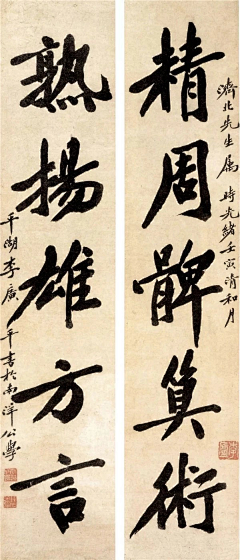 濟北先生属 時光緒壬寅清和月
精周髀算術
熟揚雄方言
平湖李廣平書於南洋公學